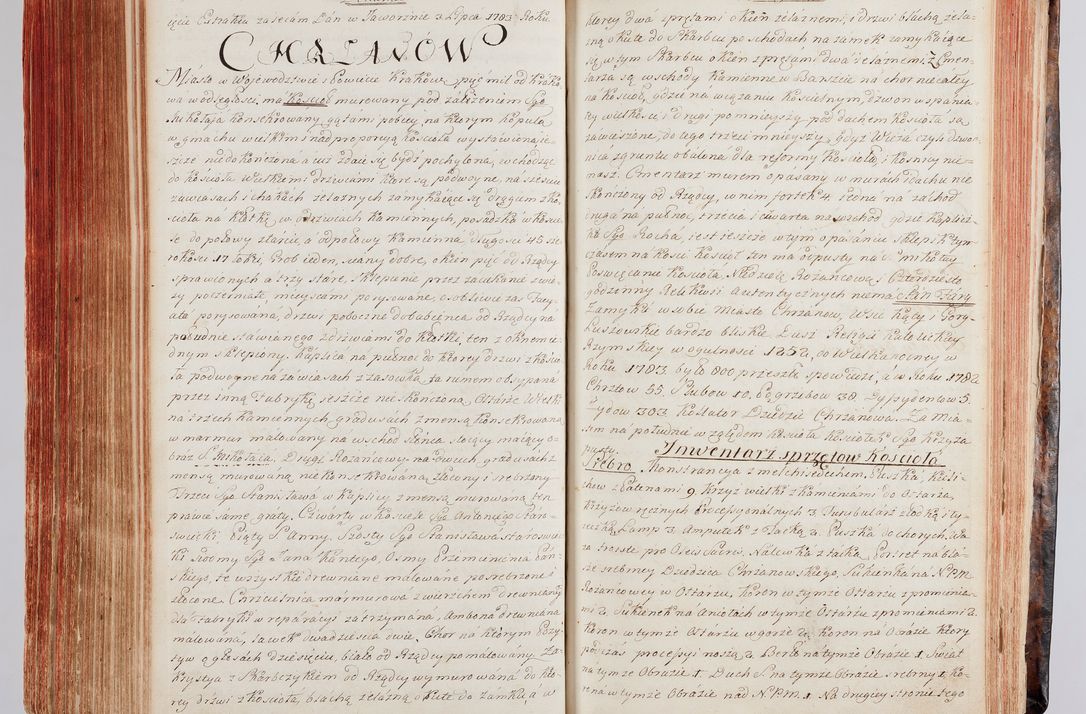 ięcie Extraktu zalecam Dán w Jaworznie 3 Lipca 1783 Roku.
CHRZANÓW
Miásto w Woiewodztwie y Powiecie Krakow: pięć mil od Krako
wa w odległości, ma Kościoł murowany pod założeniem Sgo
Mikołaja konsekrowany, gątami pobity, na ktorym kopuła
w gmachu wielkim i nad proporcyą kościoła wystawiona ie
szcze niedokończona a iuż zdaie się bydź pochylona, wchodząc
do kościoła wielkiemi drzwiami które są podwoyne, na sześciu
zawiasach i hakach żelaznych zamykaiące się drągiem z ko
ścioła na kłotkę, w odrzwiach kamiennych, posadzka w koście
le do połowy
sprawionych a trzy stare, sklepienie przez zaciekanie
ży poczerniałe, mieyscami porysowane, osobliwie
porysowana, drzwi poboczne do babińca od Rządcy na
południe stawianego z drzwiami do kłotki, ten z oknem ie
dnym sklepiony. Kaplica na pułnoc do ktorey drzwi z kościo
ła podwoyne na zawiasach z zasowką, ta rumem obsypana
przez inną Fabrykę jeszcze nieskończona. Ołtarz Wielki
na trzech kamiennych gradusach z mensą konsekrowaną
w marmur malowany na wschod słońca stoiący maiący o
braz S. Mikołaia. Drugi Rożańcowy na dwuch gradusach z
mensą murowaną nie konsekrowaną złacony i srebrzony
Trzeci Sgo Stanisława w kaplicy z mensą murowaną ten
prawie same graty. Czwarty w kościele Sgo Antoniego
Piąty S. Anny. Szosty Sgo Stanisława
ki siodmy Sgo Jana Kantego. Osmy Przemienienia Pań
skiego, te wszystkie drewniane malowane posrebrzone i
złacone. Chrzcielnica marmurowa z wierzchem drewnianym
dla fabryki w reparacyi zatrzymana, Ambona drewniana
malowana, ławek dwadzieścia dwie. Chor na ktorym Pozy
tyw o głosach dziesięciu, biało od Rządcy pomalowany, Za
krystya z skarbczykiem od Rządcy wymurowana do kto
rey drzwi z kościoła, blachą żelazną okute do zamku a w
ktorey dwa z prętami okien żelaznemi, i drzwi blachą żela
zną okute do skarbcu po schodach na zamek zamykaiące
się w tym skarbcu okien z prętami dwa żelaznemi. Z Cmen
tarza są wschody kamienne w Baszcie na chor nie cały
na kościoł, gdzie na wiązaniu kościelnym, dzwon wspania
ły wielkości i drugi pomnieyszy pod dachem kościoła są
zawieszone, do tego trzeci mnieyszy, gdyż Wieża czyli dzwo
nica z gruntu obalona dla reformy kościoła, i kosnicy nie
masz. Cmentarz murem opasany w murach i dachu nie
skończony od Rządcy, w nim fortek 4. iedna na zachod
druga na pułnoc, trzecia i czwarta na wschod gdzie kaplicz
ka Sgo Rocha, iest ieszcze w tym opasaniu sklepik tym
czasem na kości. Kościoł ten ma odpusty na S. Mikołay
Poswięcanie kościoła Niedzielę Rożańcową Czterdziesto
godzinny Relikwii autentycznych niema. Stan Fary
Zamyka w sobie miasto Chrzanow, Wsie Kąty i
Luszowskie bardzo bliskie. Dusz Religii katolickiey
Rzymskiey w ogulności 1852, co Wielkanocney w
Roku 1783 było 800 przeszło spowiedzi, a w Roku 1782
Chrztow 55. Slubow 10. Pogrzebow 38. Dyssydentow 5.
Żydow 303 Kollator Dziedzic Chrzanowa. Za Mia
stem na południe w zględem kościoła kościołek Sgo Krzyża
pusty. Inwentarz sprzętow kościoła
Srebro. Monstrancya z melchisedechem, Puszka, kieli
chow z Patenami 9. Krzyż wielki z kamieniami do Ołtarza,
Krzyżow ręcznych Processyonalnych 3 Turybularz z łodką i ły
żeczką, Lamp 3. Ampułek z Tacką 2. Puszka do chorych, Wa
za troiste pro Oleis Sacris, Nalewka z tacką, Portret na bla
sze srebrney Dziedzica Chrzanowskiego, Sukienka na N.P.M.
Rożańcowey w Ołtarzu, Koron w tymże Ołtarzu z promienia
mi 2. Sukienek na Aniołach w tymże Ołtarzu z promieniami 2.
Koron w tymże Ołtarzu w gorze 2. Koron na Obrazie ktory
podczas procesyi noszą 2. Berło na tymże Obrazie 1. Swiat
na tymże Obrazie 1. Duch S. na tymże Obrazie srebrny 1. Ko
rona w tymże Obrazie nad N.P.M. 1. Na drugiey stronie tego